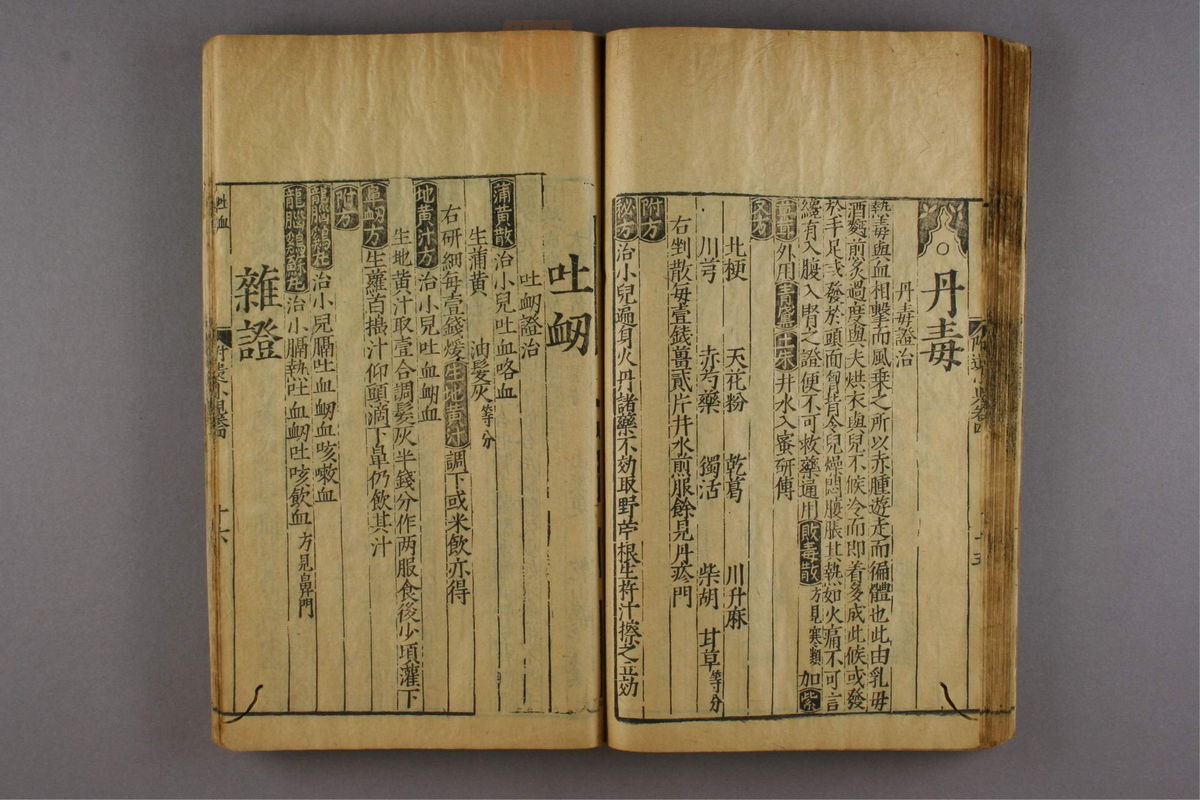 丹毒
丹毒證治
熱毒與血相擊而風乗之所以赤腫遊走而徧體也此由乳母
酒麪煎炙過度與夫烘衣與兒不候冷而即着多成此候或發
於手足或發於頭面胷背令兒燥悶腹脹其熱如火痛不可言
纔有入腹入腎之證便不可救藥通用敗毒散方見寒類加紫
草茸外用青黛土朱井水入蜜研傅
又方
北梗 天花粉 乾葛 川升麻
川芎 赤芍藥 獨活 柴胡 甘草等分
右剉散每壹錢薑貳片井水煎服餘見丹疹門
附方
秘方治小兒遍身火丹諸藥不効取野芐根生杵汁擦之立効
十五
吐衂
吐衂證治
蒲黄散治小兒吐血咯血
生蒲黄 油髮灰等分
右研細每壹錢煖生地黄汁調下或米飲亦得
地黄汁方治小兒吐血衂血
生地黄汁取壹合調髮灰半錢分作两服食後少項灌下
鼻衂方生蘿蔔搗汁仰頭滴下鼻仍飲其汁
附方
龍腦鷄蘇丸治小兒膈吐血衂血咳嗽血
龍腦鷄蘇丸治小膈熱吐血衂吐咳飲血方見鼻門
雜證
吐血
十六